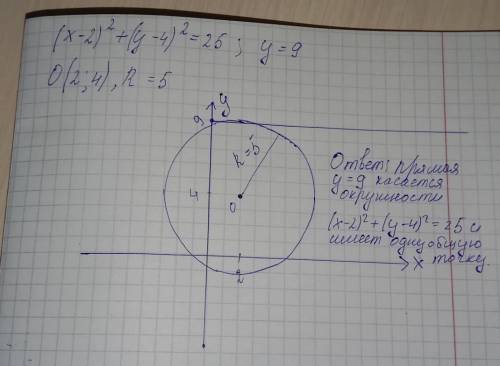 (x-2)²+(y-4)²=25; y=9
O(2;4), R=5
y
9
R=5
Ответ: прямая
y=9 касается
окружности
4
O
(x-2)²+(y-4)²=25 и
имеет одну общую
точку.
x
2